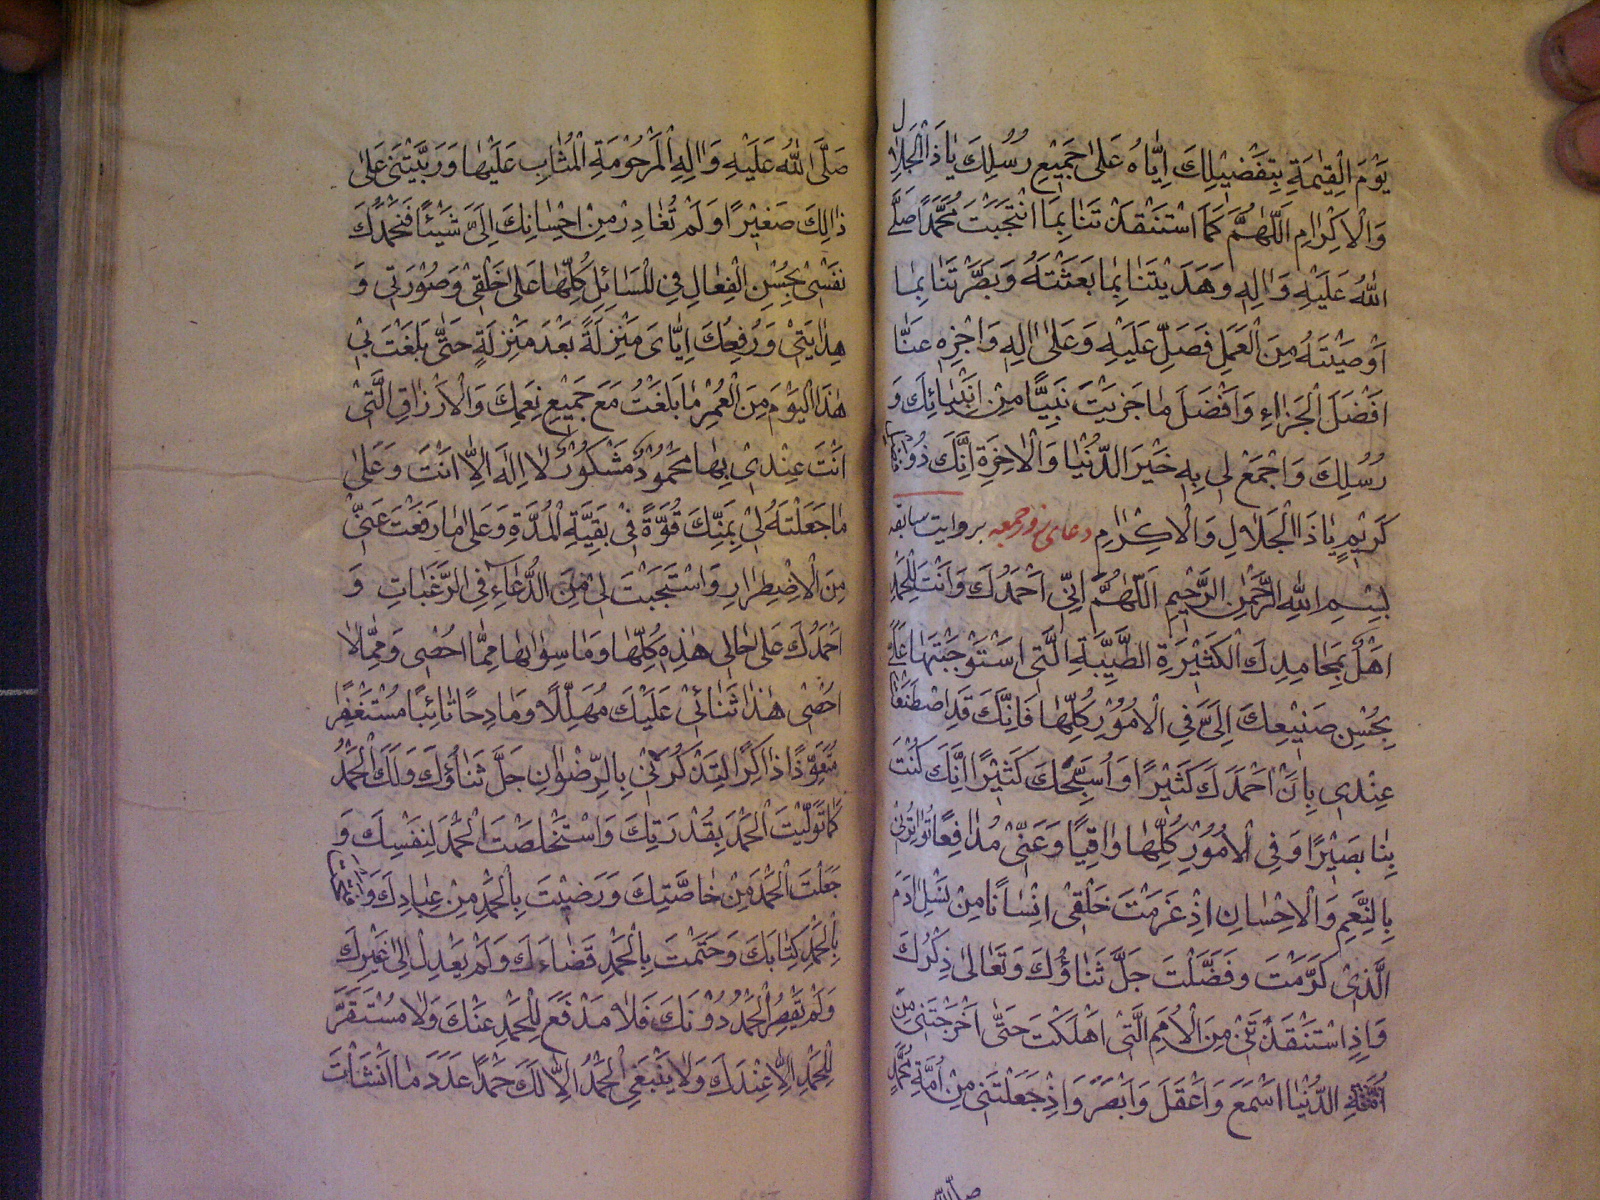 يَوْمَ الْقِيٰمَةِ بِتَفْضِيْلِكَ اِيَّاهُ عَلىٰ جَمِيْعِ رُسُلِكَ يٰا ذَا الْجَلٰالِ
وَالْاِكْرٰامِ اَللّٰهُمَّ كَمَا اسْتَنْقَذْتَنَا بِمَا انْتَجَبْتَ مُحَمَّدًا صَلَّى
اللّٰهُ عَلَيْهِ وَاٰلِهِ وَهَدَيْتَنٰا بِمٰا بَعَثْتَهُ وَبَصَّرْتَنٰا بِمٰا
اَوْصَيْتَهُ مِنَ الْعَمَلِ فَصَلِّ عَلَيْهِ وَعَلىٰ اٰلِهِ وَاجْزِهِ عَنّٰا
اَفْضَلَ الْجَزٰاءِ وَاَفْضَلَ مٰا جَزَيْتَ نَبِيًّا مِنْ اَنْبِيٰائِكَ وَ
رُسُلِكَ وَاجْمَعْ لِي بِهِ خَيْرَ الدُّنْيٰا وَالْاٰخِرَةِ اِنَّكَ ذُو
كَرِيْمٍ يٰا ذَا الْجَلٰالِ وَالْاِكْرٰامِ دعای روز جمعه بروایت سابقه
بِسْمِ اللّٰهِ الرَّحْمٰنِ الرَّحِيْمِ اَللّٰهُمَّ اِنِّي اَحْمَدُكَ وَاَنْتَ لِلْحَمْدِ
اَهْلٌ بِمَحٰامِدِكَ الْكَثِيْرَةِ الطَّيِّبَةِ الَّتِي اسْتَوْجَبْتَهٰا عَلَيَّ
بِحُسْنِ صَنِيْعِكَ اِلَيَّ فِي الْاُمُوْرِ كُلِّهٰا فَاِنَّكَ قَدِ اصْطَنَعْتَ
عِنْدِي بِاَنْ اَحْمَدَكَ كَثِيْرًا وَاُسَبِّحَكَ كَثِيْرًا اِنَّكَ كُنْتَ
بِنٰا بَصِيْرًا وَفِي الْاُمُوْرِ كُلِّهٰا وٰاقِيًا وَعَنِّيْ مُدٰافِعًا تُوٰاتِرُنِي
بِالنِّعَمِ وَالْاِحْسٰانِ اِذْ عَزَمْتَ خَلْقِيْ اِنْسٰانًا مِنْ نَسْلِ اٰدَمَ
الَّذِيْ كَرَّمْتَ وَفَضَّلْتَ جَلَّ ثَنٰاؤُكَ وَتَعٰالىٰ ذِكْرُكَ
وَاِذِ اسْتَنْقَذْتَنِيْ مِنَ الْاُمَمِ الَّتِيْ اَهْلَكْتَ حَتّٰى اَخْرَجْتَنِي مِنَ
الدُّنْيٰا اَسْمَعَ وَاَعْقَلَ وَاَبْصَرَ وَاِذْ جَعَلْتَنِي مِنْ اُمَّةِ مُحَمَّدٍ
صَلَّى اللّٰهُ عَلَيْهِ وَاٰلِهِ الْمَرْحُوْمَةِ الْمُثٰابِ عَلَيْهٰا وَرَبَّيْتَنِي عَلىٰ
ذٰالِكَ صَغِيْرًا وَلَمْ تُغٰادِرْ مِنْ اِحْسٰانِكَ اِلَيَّ شَيْئًا فَتَحْمَدُكَ
نَفْسِيْ بِحُسْنِ الْفِعٰالِ فِي الْمَسٰائِلِ كُلِّهٰا عَلىٰ خَلْقِيْ وَصُوْرَتِي وَ
هِدٰايَتِيْ وَرُفْعِكَ اِيّٰايَ مَنْزِلَةً بَعْدَ مَنْزِلَةٍ حَتّٰى بَلَغْتَ بِيْ
هٰذَا الْيَوْمَ مِنَ الْعُمْرِ مٰا بَلَغْتُ مَعَ جَمِيْعِ نِعَمِكَ وَالْاَرْزٰاقِ الَّتِيْ
اَنْتَ عِنْدِيْ بِهٰا مَحْمُوْدٌ مَشْكُوْرٌ لٰا اِلٰهَ اِلّٰا اَنْتَ وَعَلىٰ
مٰا جَعَلْتَهُ لِيْ بِمَنِّكَ قُوَّةً فِيْ بَقِيَّةِ الْمُدَّةِ وَعَلىٰ مٰا رَفَعْتَ عَنِّيْ
مِنَ الْاِضْطِرٰارِ وَاسْتَجَبْتَ لِيْ مِنَ الدُّعٰاءِ فِي الرَّغَبٰاتِ وَ
اَحْمَدُكَ عَلىٰ حٰالِي هٰذِهِ كُلِّهٰا وَمٰا سِوٰاهٰا مِمّٰا اُحْصِي وَمِمّٰا لٰا
اُحْصِيْ هٰذٰا ثَنٰائِيْ عَلَيْكَ مُهَلِّلًا وَمٰادِحًا تٰائِبًا مُسْتَغْفِرًا
مُتَعَوِّذًا ذٰاكِرًا لِتَذْكُرَنِيْ بِالرِّضْوٰانِ جَلَّ ثَنٰاؤُكَ وَلَكَ الْحَمْدُ
كَمٰا تَوَلَّيْتَ الْحَمْدَ بِقُدْرَتِكَ وَاسْتَخْلَصْتَ الْحَمْدَ لِنَفْسِكَ وَ
جَعَلْتَ الْحَمْدَ مِنْ خٰاصَّتِكَ وَرَضِيْتَ بِالْحَمْدِ مِنْ عِبٰادِكَ
بِالْحَمْدِ كِتٰابَكَ وَخَتَمْتَ بِالْحَمْدِ قَضٰاءَكَ وَلَمْ يَعْدِلْ اِلىٰ غَيْرِكَ
وَلَمْ يَقْصُرِ الْحَمْدُ دُوْنَكَ فَلٰا مَدْفَعَ لِلْحَمْدِ عَنْكَ وَلٰا مُسْتَقَرَّ
لِلْحَمْدِ اِلّٰا عِنْدَكَ وَلٰا يَنْبَغِي الْحَمْدُ اِلّٰا لَكَ حَمْدًا عَدَدَ مٰا اَنْشَأْتَ